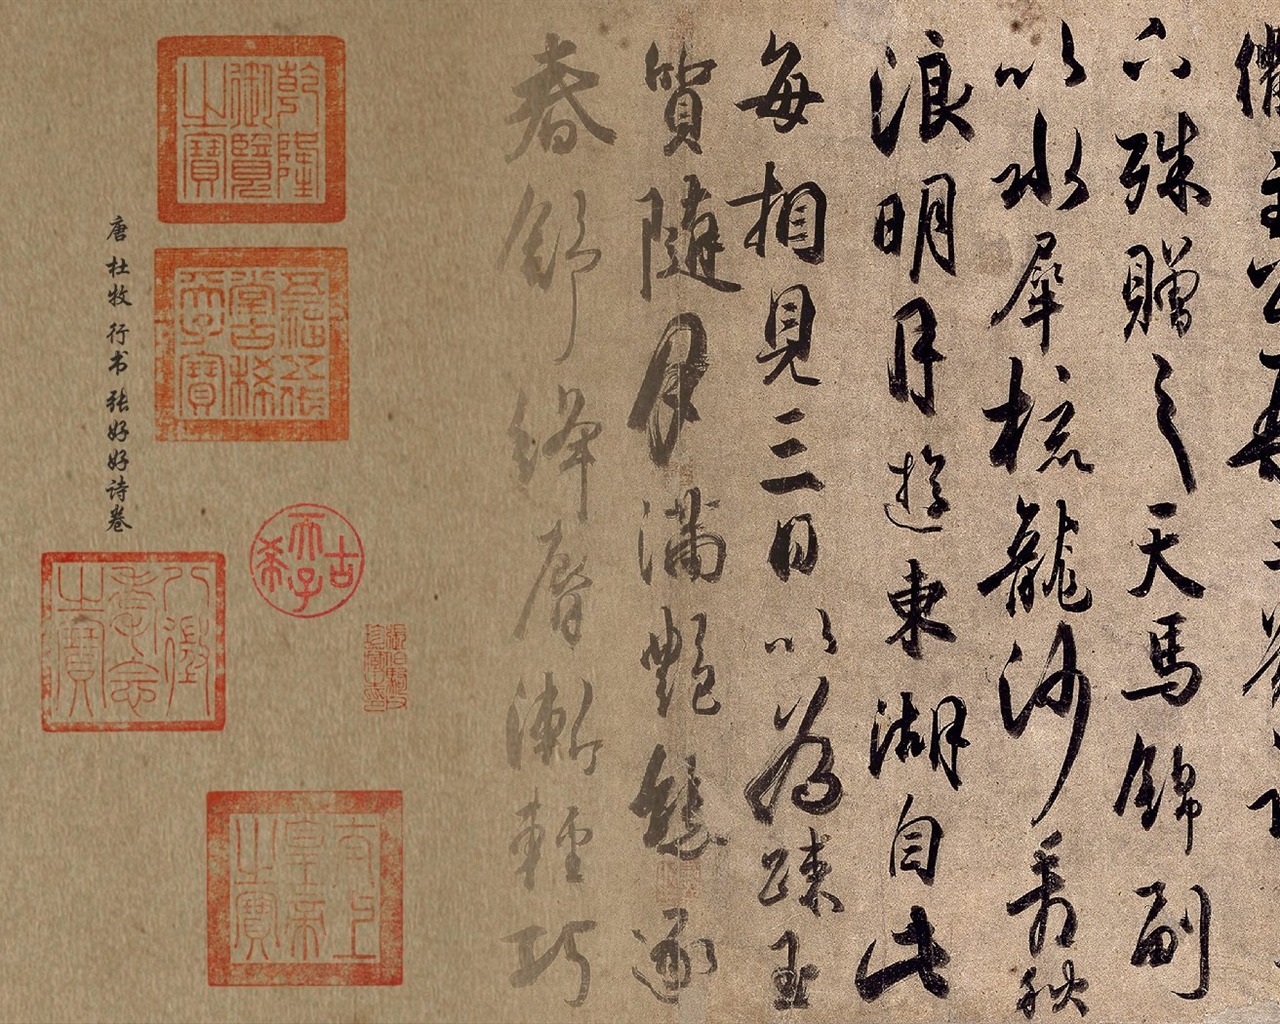 下殊贈之天馬錦副
以水犀梳龍沙看秋
浪明月遊東湖自此
每相見三日以為踈玉
質隨月滿艷態逐
春舒絳脣漸輕巧
乾隆御覽之寶
五福五代堂古稀天子寶
古希天子
八徵耄念之寶
太上皇帝之寶
唐杜牧行书张好好诗卷